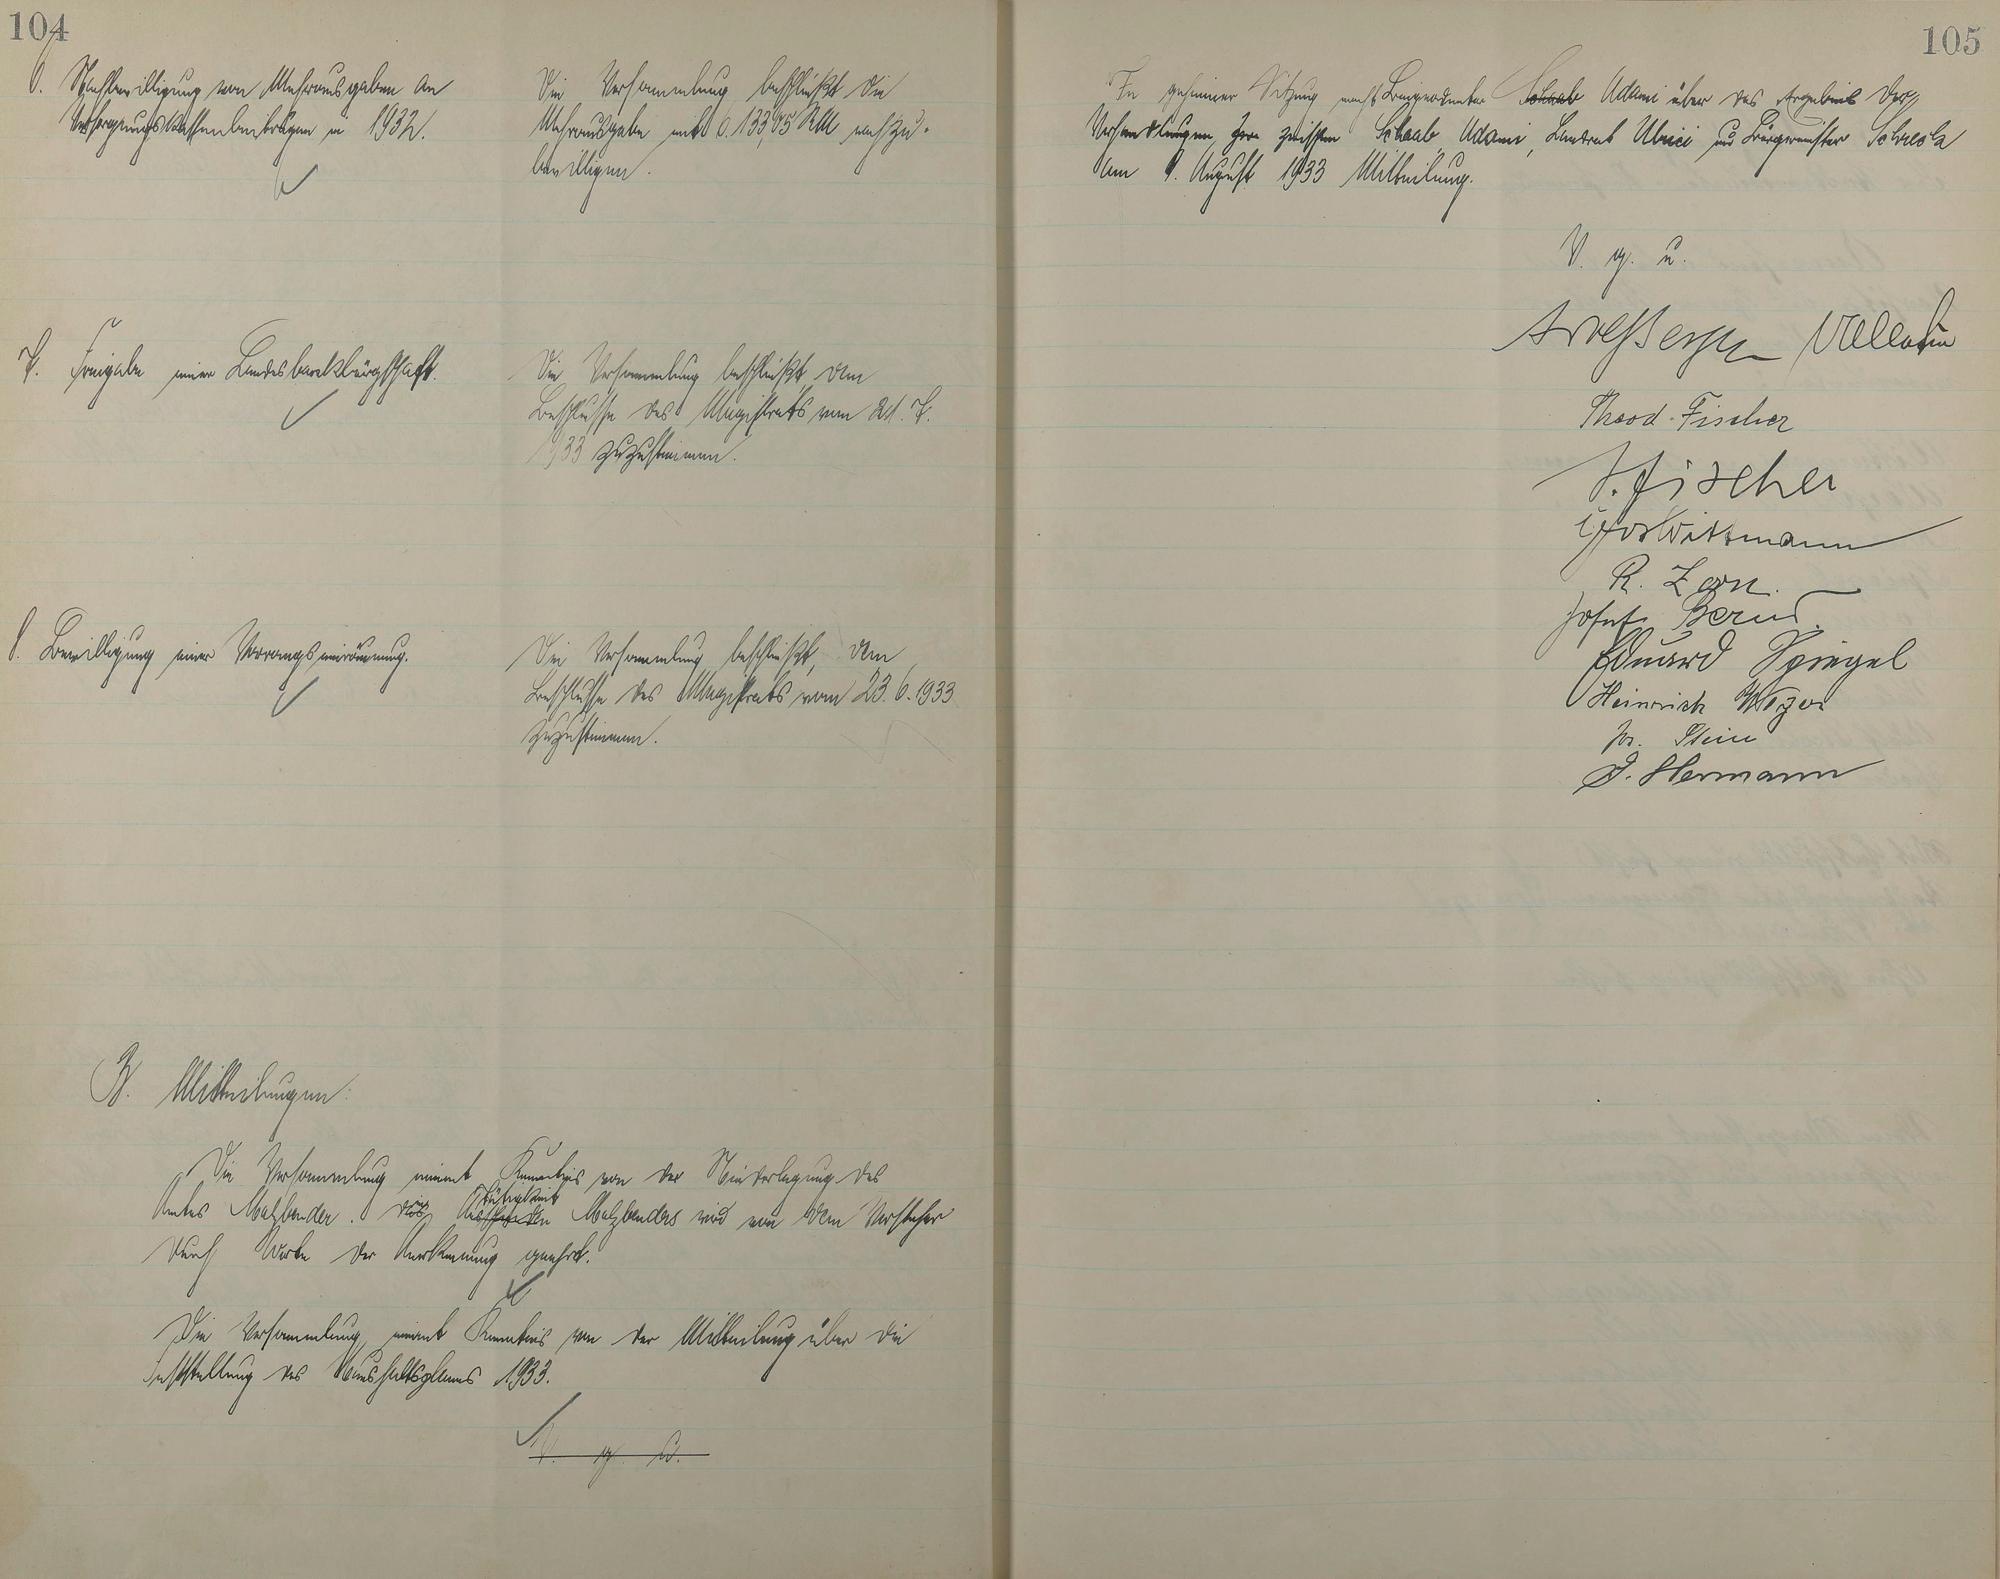 104
6. Nachbewilligung von Mehrausgaben an
Versorgungskassenbeiträgen in 1932.
Die Versammlung beschließt die
Mehrausgabe mit 6.133,75 RM nachzu-
bewilligen.
7. Freigabe einer Landesbankbürgschaft.
Die Versammlung beschließt, dem
Beschlusse des Magistrats vom 21. 7.
1933 zuzustimmen.
8. Bewilligung einer Vorrangseinräumung.
Die Versammlung beschließt, dem
Beschlusse des Magistrats vom 23. 6. 1933
zuzustimmen.
B. Mitteilungen:
Die Versammlung nimmt Kenntnis von der Niederlegung des
Amtes Malzbender. Die Tätigkeit Malzbenders wird von dem Vorsteher
durch Worte der Anerkennung geehrt.
Die Versammlung nimmt Kenntnis von der Mitteilung über die
Feststellung des Haushaltsplanes 1933.
V. g. u.
105
In geheimer Sitzung macht Beigeordneter Schaab Adami über das Ergebnis der
Verhandlungen zwischen Schaab, Adami, Landrat Ulrici und Bürgermeister Schreck
am 9. August 1933 Mitteilung.
V. g. u.
Theod. Fischer
J. Fischer
Jos Wittmann
R. Zorn.
Josef Bernd.
Eduard Spiegel
Heinrich
Jos. Stein
J. Hermann